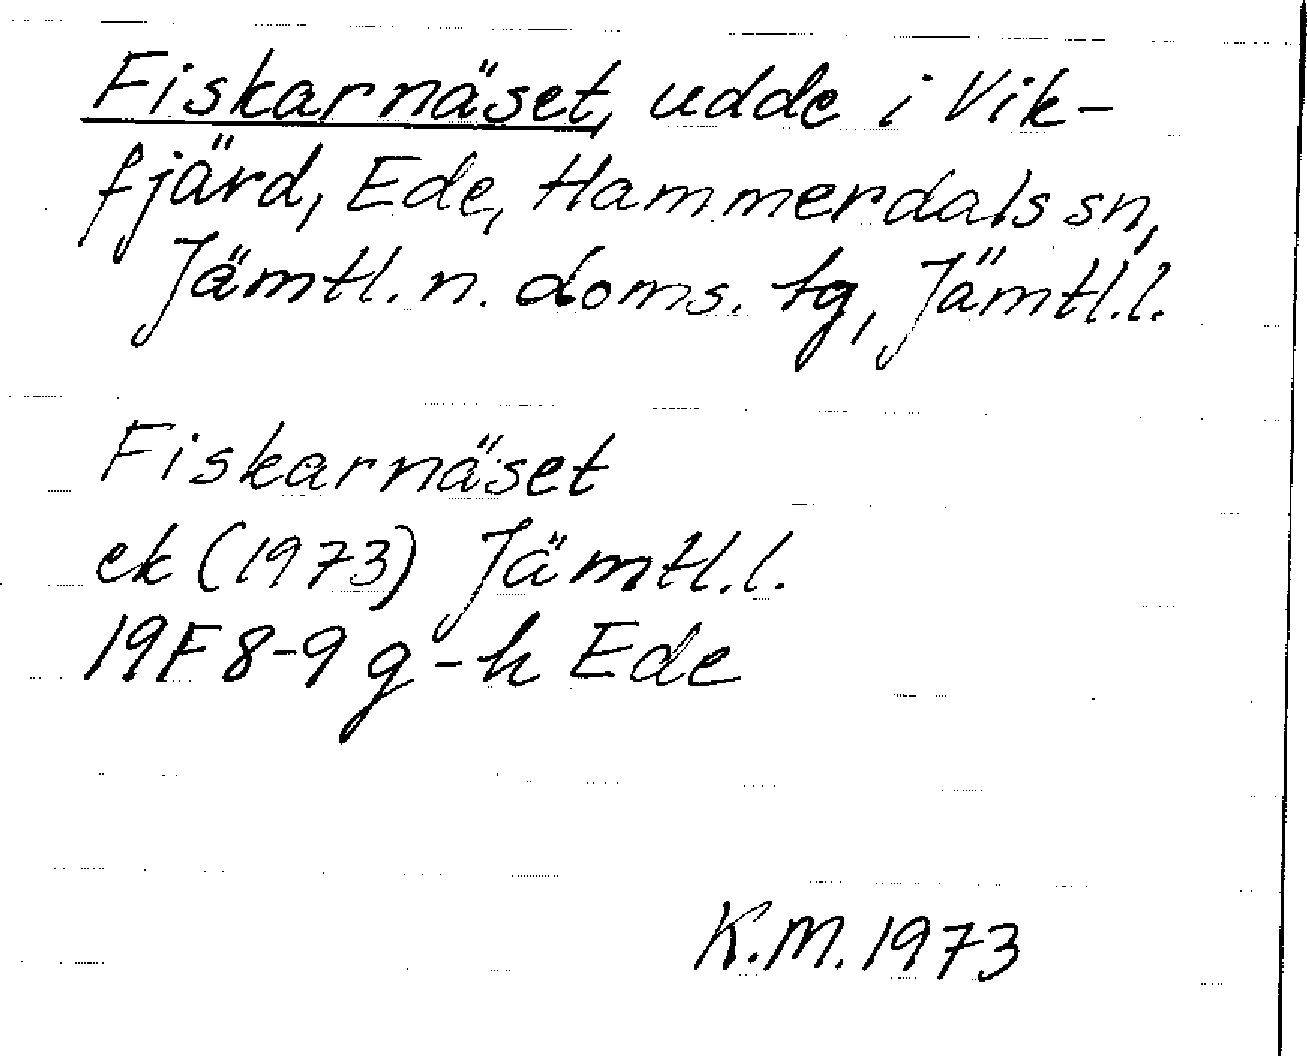 Fiskarnäset, udde i Vik-
fjärd, Ede, Hammerdals sn,
Jämtl. n. doms. tg, Jämtl.l.
Fiskarnäset
ek (1973) Jämtl.l.
19F 8-9 g-h Ede
K.M. 1973